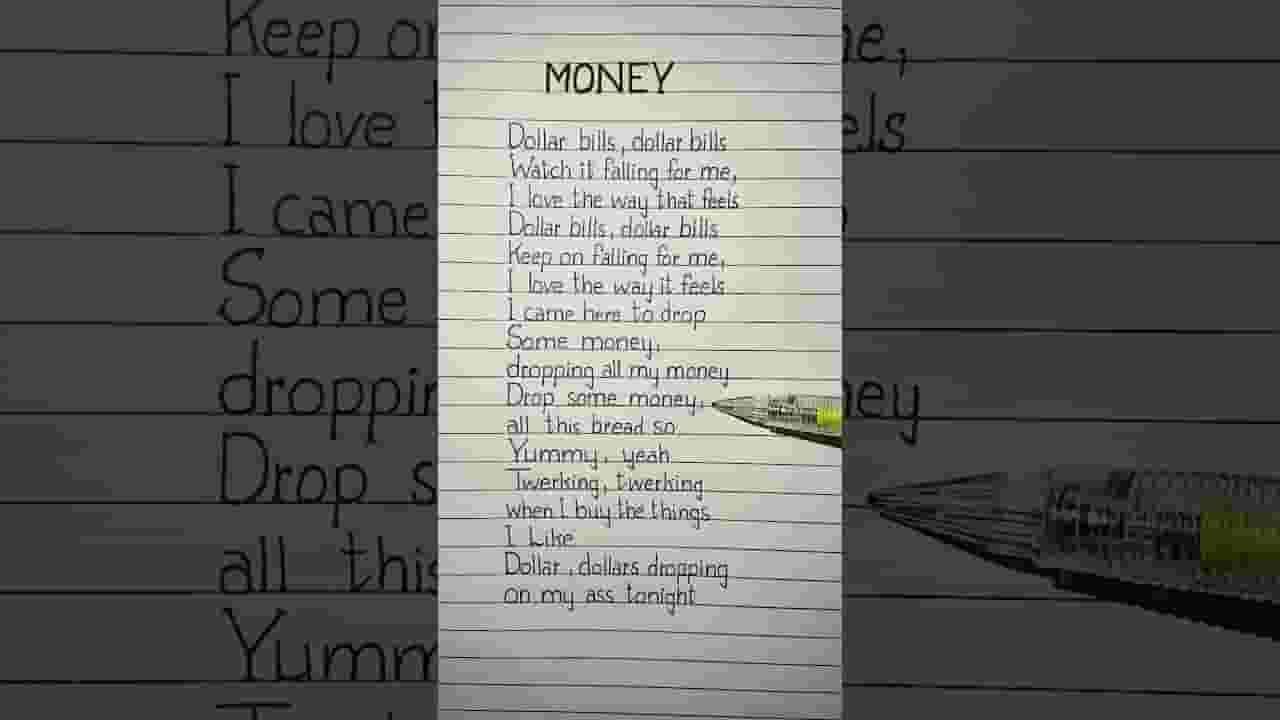 MONEY
Dollar bills, dollar bills
Watch it falling for me,
I love the way that feels
Dollar bills, dollar bills
Keep on falling for me,
I love the way it feels
I came here to drop
Some money,
dropping all my money
Drop some money,
all this bread so
Yummy, yeah
Twerking, twerking
when I buy the things
I Like
Dollar, dollars dropping
on my ass tonight